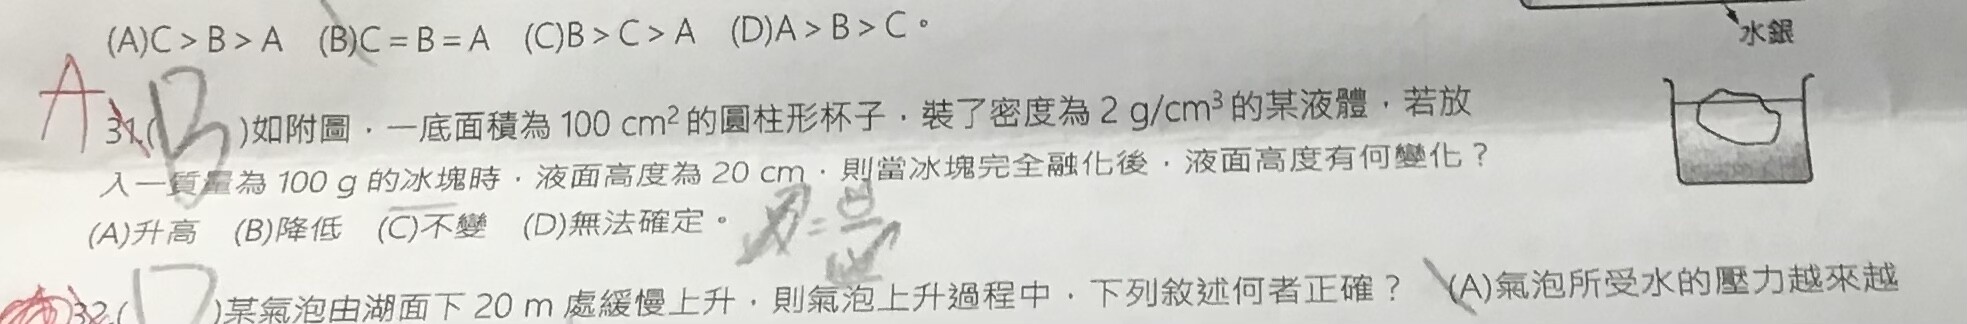 (A)C > B > A (B)C = B = A (C)B > C > A (D)A > B > C。
水銀
A 31.( B )如附圖，一底面積為 100 cm²的圓柱形杯子，裝了密度為 2 g/cm³的某液體，若放
入一質量為 100 g 的冰塊時，液面高度為 20 cm，則當冰塊完全融化後，液面高度有何變化？
(A)升高 (B)降低 (C)不變 (D)無法確定。
32.( D )某氣泡由湖面下 20 m 處緩慢上升，則氣泡上升過程中，下列敘述何者正確？ (A)氣泡所受水的壓力越來越